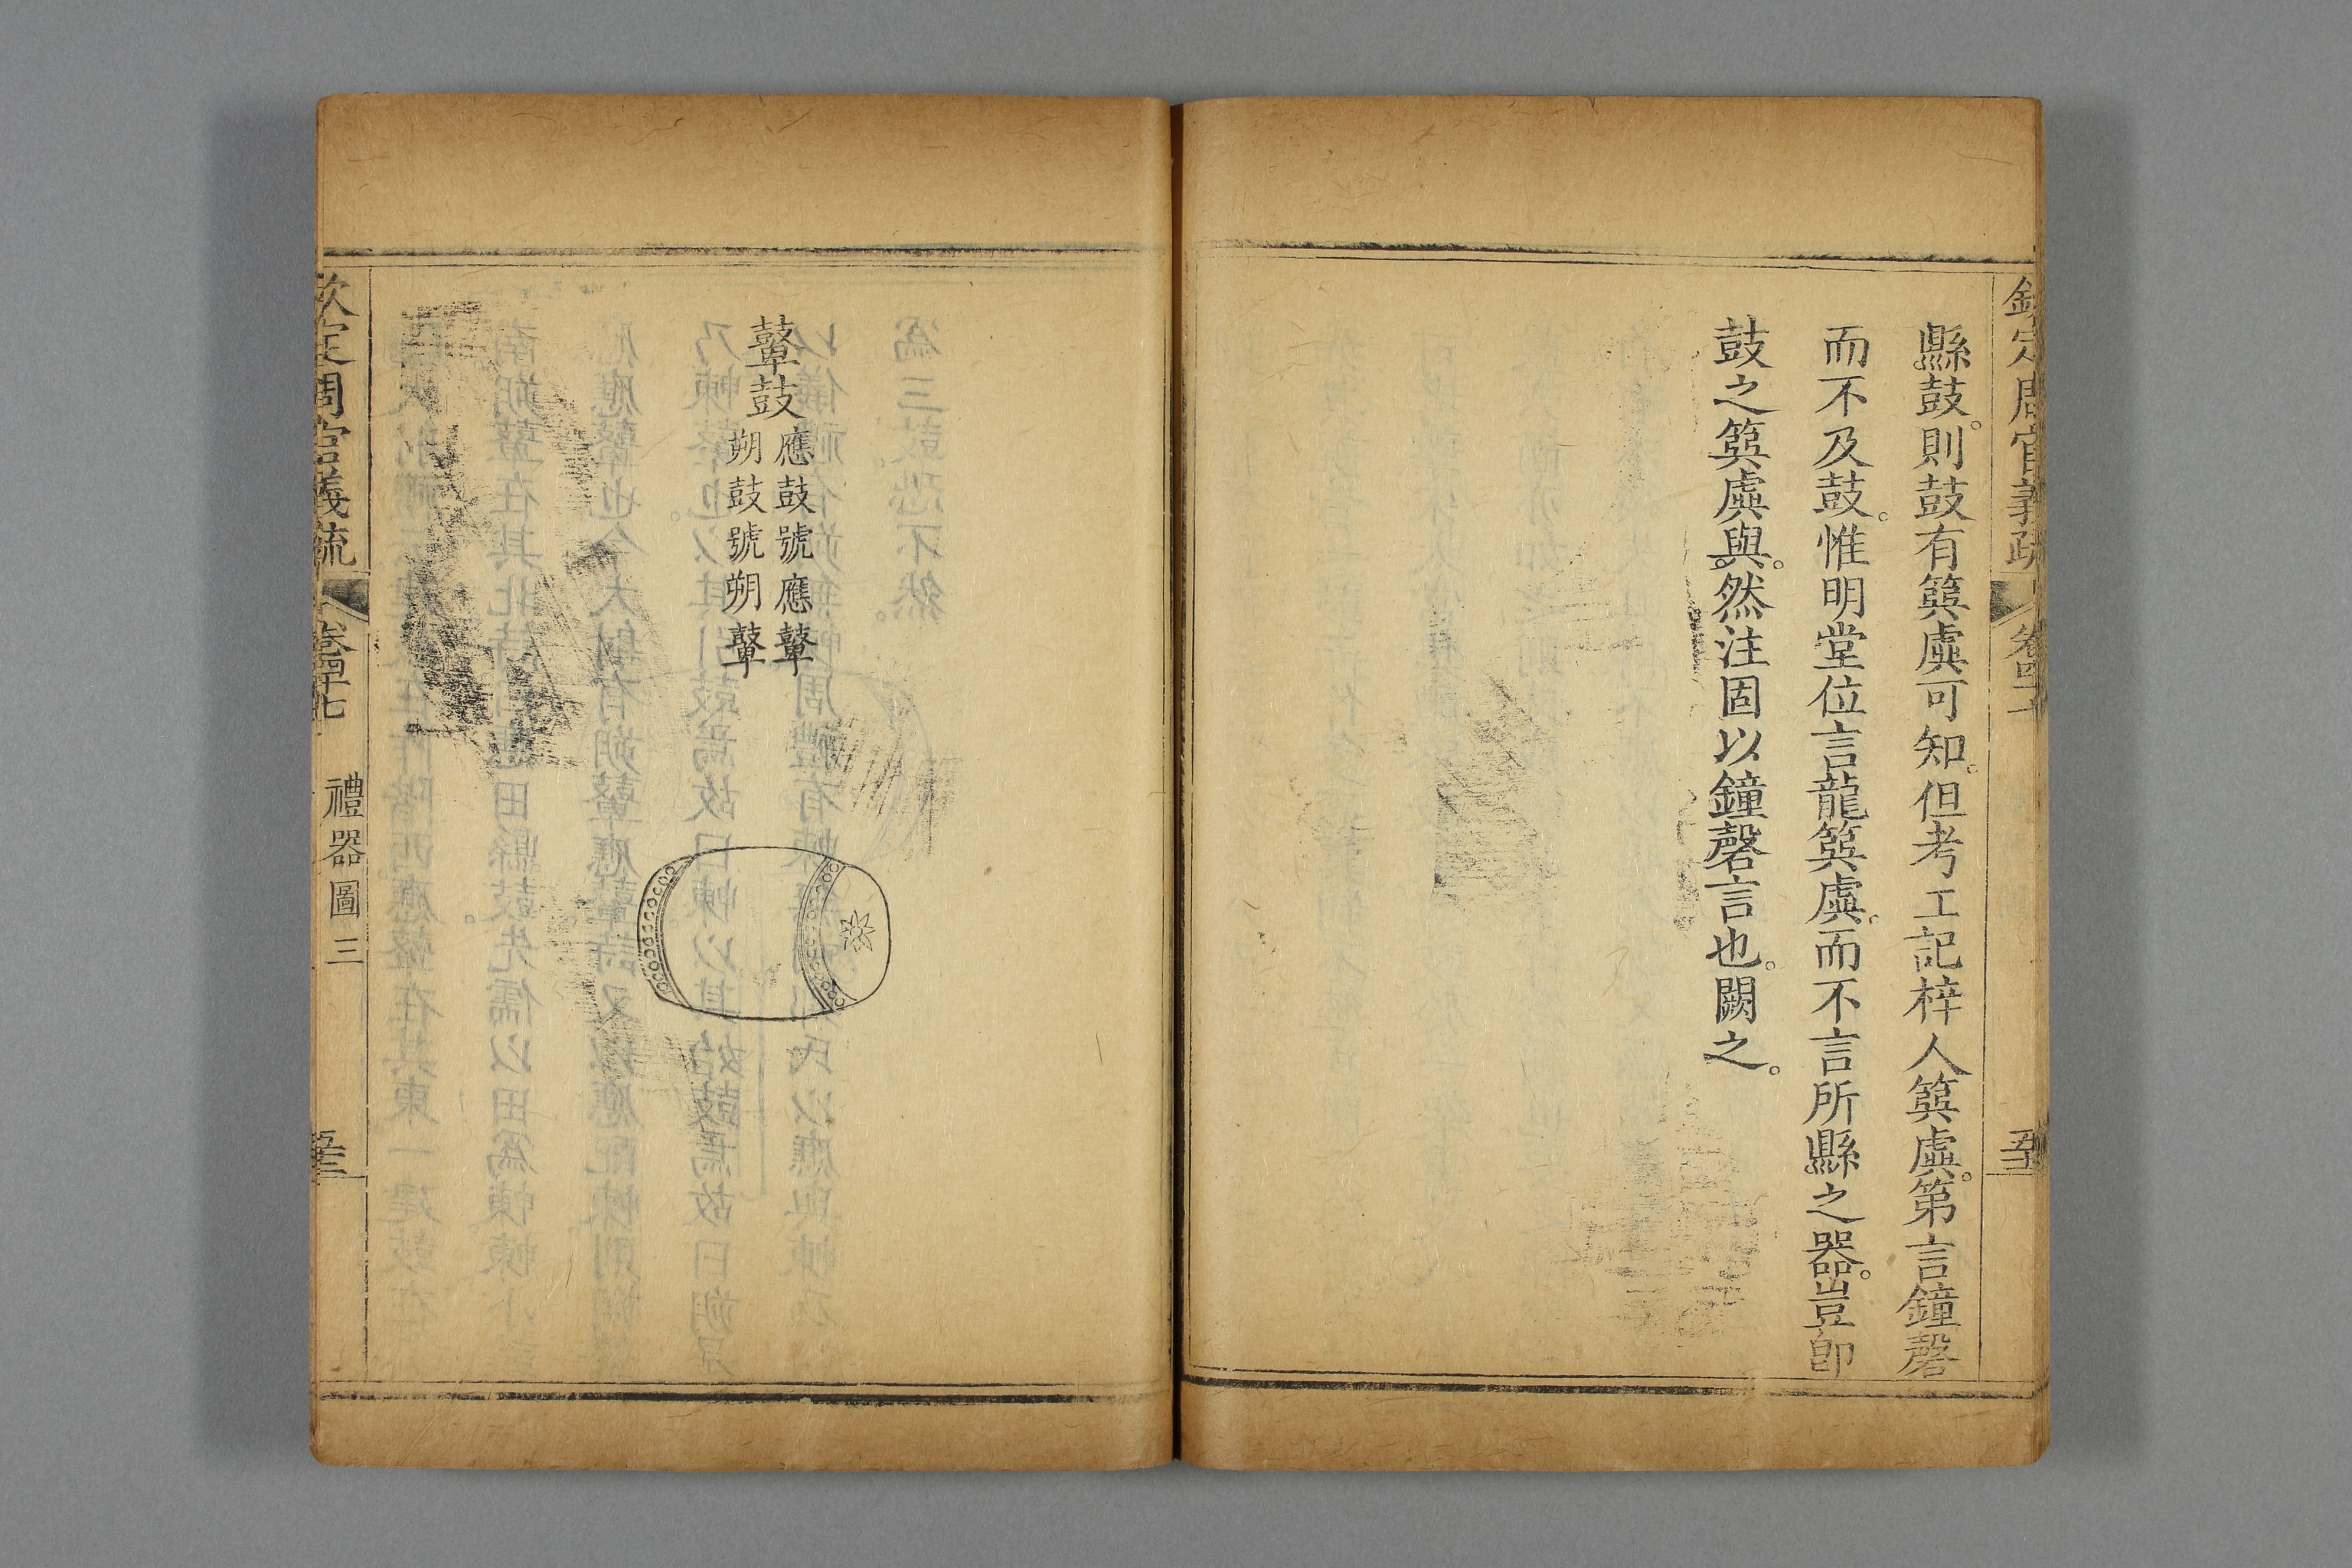 縣鼓。則鼓有簨虡可知。但考工記梓人簨虡。第言鐘磬
而不及鼓。惟明堂位言龍簨虡。而不言所縣之器。豈卽
鼓之簨虡與。然注固以鐘磬言也。闕之。
鼙鼓
應鼓號應鼙
朔鼓號朔鼙
欽定周官義疏
卷四十七
禮器圖三